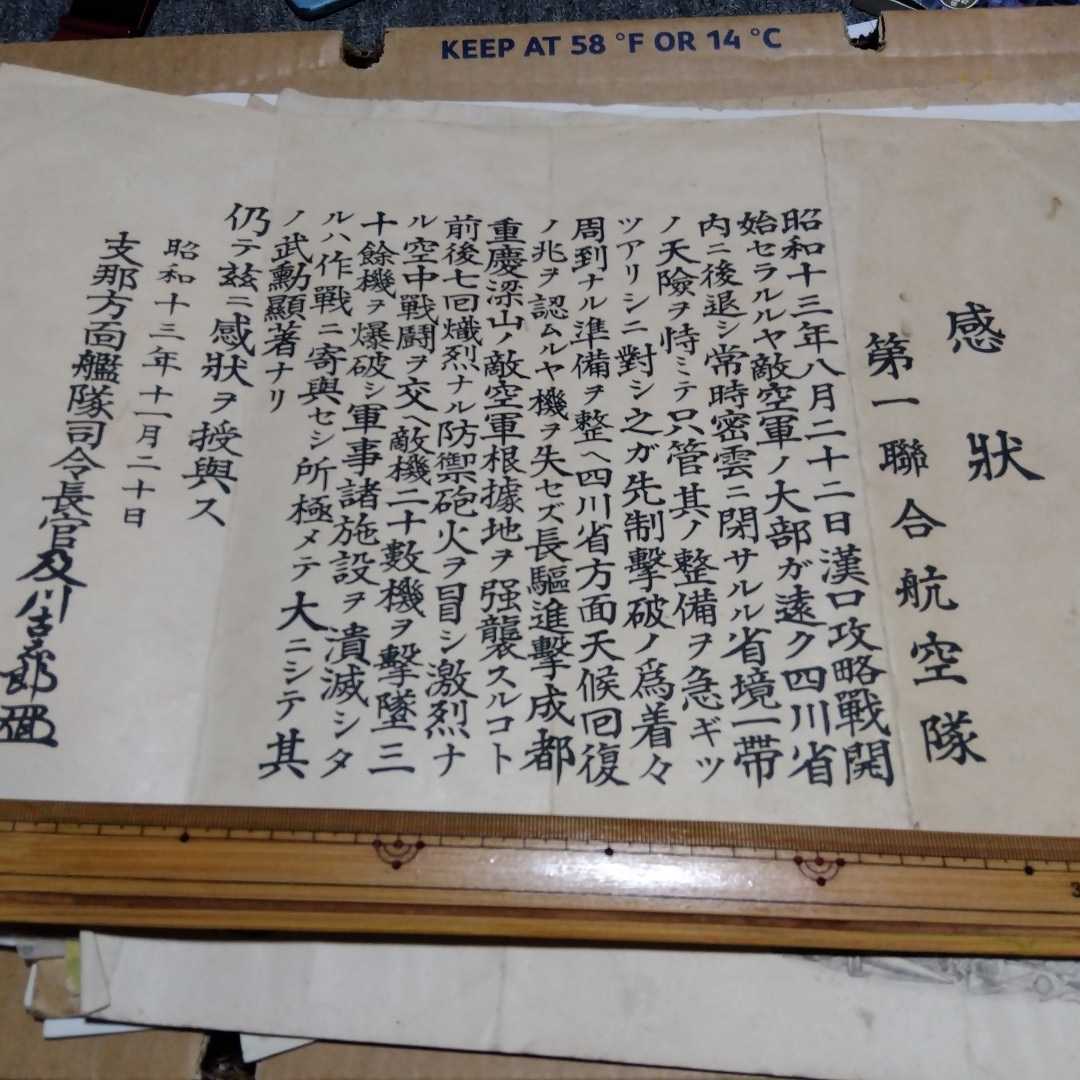 KEEP AT 58 °F OR 14 °C
感狀
第一聯合航空隊
昭和十三年八月二十二日漢口攻略戰開
始セラルルヤ敵空軍ノ大部ガ遠ク四川省
內ニ後退シ常時密雲ニ閉サルル省境一帶
ノ天險ヲ恃ミテ只管其ノ整備ヲ急ギツ
ツアリシニ對シ之ガ先制擊破ノ爲着々
周到ナル準備ヲ整ヘ四川省方面天候回復
ノ兆ヲ認ムルヤ機ヲ失セズ長驅進擊成都
重慶梁山ノ敵空軍根據地ヲ强襲スルコト
前後七回熾烈ナル防禦砲火ヲ冒シ激烈ナ
ル空中戰鬪ヲ交ヘ敵機二十數機ヲ擊墜三
十餘機ヲ爆破シ軍事諸施設ヲ潰滅シタ
ルハ作戰ニ寄與セシ所極メテ大ニシテ其
ノ武勳顯著ナリ
仍テ玆ニ感狀ヲ授與ス
昭和十三年十一月二十日
支那方面艦隊司令長官及川古志郎